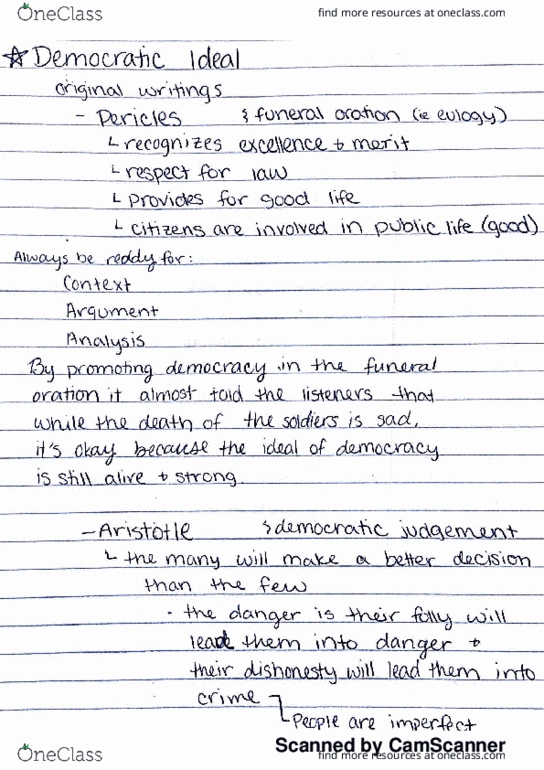 OneClass find more resources at oneclass.com
☆ Democratic Ideal
original writings
- Pericles } funeral oration (ie eulogy)
└ recognizes excellence + merit
└ respect for law
└ provides for good life
└ citizens are involved in public life (good)
Always be reddy for:
Context
Argument
Analysis
By promoting democracy in the funeral
oration it almost told the listeners that
while the death of the soldiers is sad,
it's okay because the ideal of democracy
is still alive + strong.
- Aristotle } democratic judgement
└ the many will make a better decision
than the few
· the danger is their folly will
lead them into danger +
their dishonesty will lead them into
crime
└ People are imperfect
Scanned by CamScanner
OneClass find more resources at oneclass.com